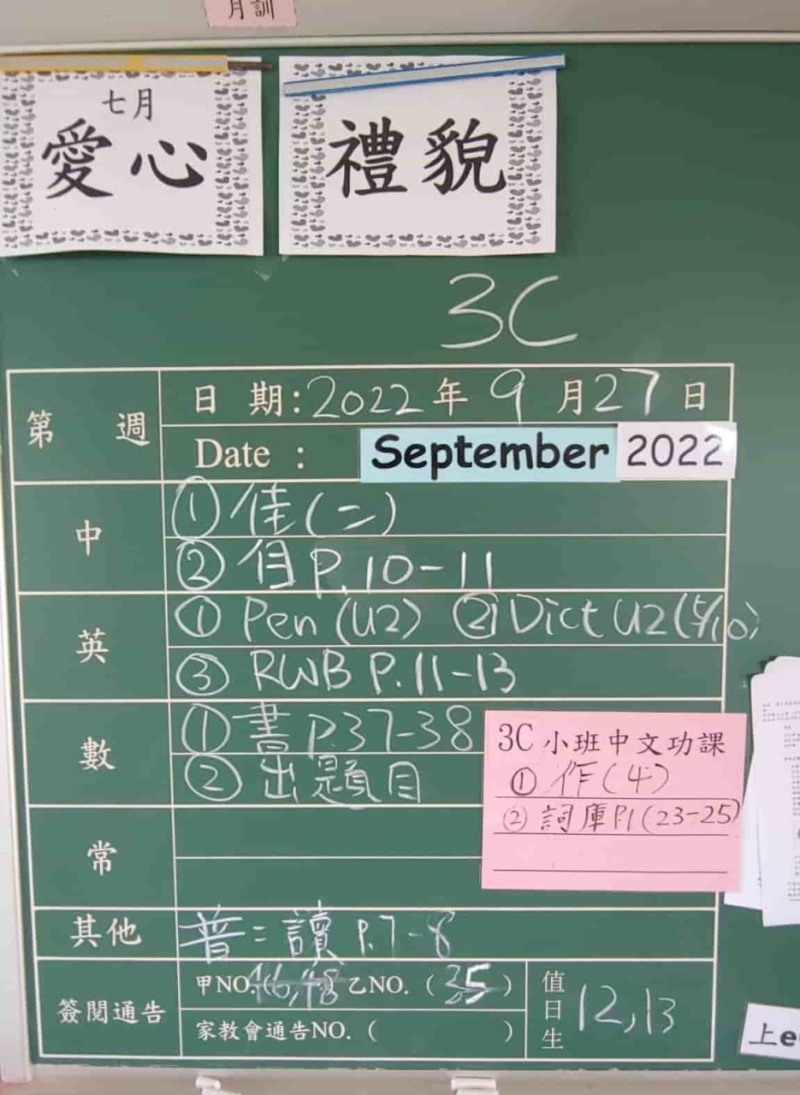 月訓
七月
愛心
禮貌
3C
第 週
日 期:2022年9月27日
Date : September 2022
中
①佳(二)
②自 P.10-11
英
①Pen (U2) ②Dict U2(5/10)
③RWB P.11-13
數
①書P.37-38
②出題目
3C 小班中文功課
①作(4)
②詞庫P.1(23-25)
常
其他
普:讀 P.7-8
簽閱通告
甲NO.(46,48) 乙NO.(35)
家教會通告NO.( )
值日生
12,13
上e